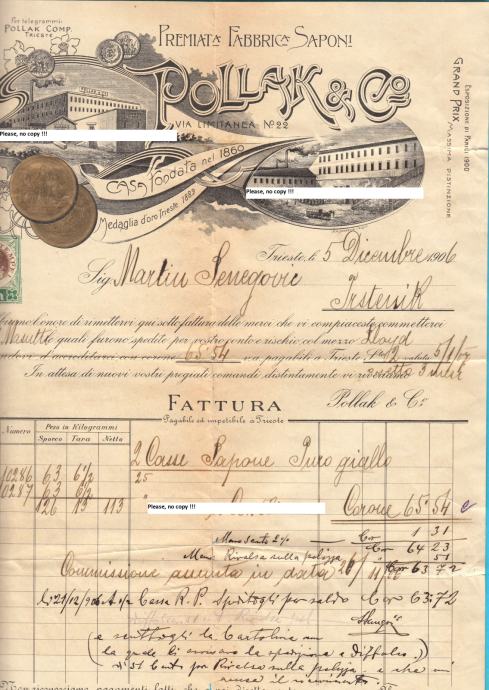 Per telegrammi:
POLLAK COMP.
TRIESTE
PREMIATA FABBRICA SAPONI
POLLAK & Co
VIA LIMITANEA No 22
POLLAK & Co
Please, no copy !!!
Please, no copy !!!
Casa fondata nel 1860
Medaglia d'oro Trieste 1882
ESPOSIZIONE DI PARIGI 1900
GRAND PRIX
MASSIMA DISTINZIONE
Trieste, li 5 Dicembre 1906
Sig. Martin Senegovic
Trstenik
l'onore di rimettervi qui sotto fattura delle merci che vi compiaceste commetterci
le quali furono spedite per vostro conto e rischio col mezzo Lloyd
d'accreditarci con corone 65.54 pagabili a Trieste valuta 5/1/07
In attesa di nuovi vostri pregiati comandi distintamente vi
Pollak & Co
FATTURA
Pagabile ed impetibile a Trieste
Numero Peso in Kilogrammi
Sporco Tara Netto
2 Casse Sapone Puro giallo
10286 63 6½ 25
10287 63 6½
126 13 113 Corone 65.54
Please, no copy !!!
Meno sconto 2% Cor 1 31
Cor 64 23
Meno Rivalsa sulla polizza 51
Cor 63.72
Commissione assunta in data
li 21/12/906 Cassa R. P. per saldo Cor 63.72
la Cartolina
la quale
per Rivalsa sulla polizza e che